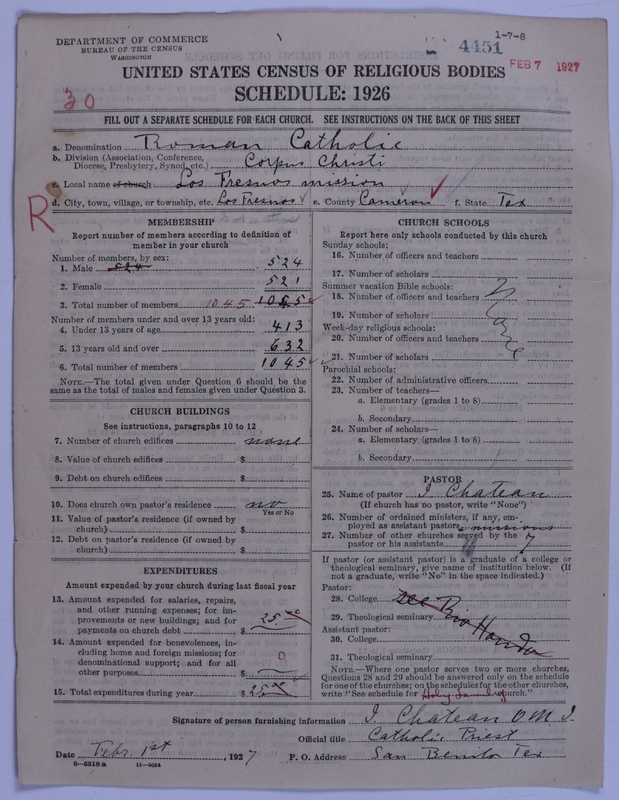 1-7-8
DEPARTMENT OF COMMERCE
BUREAU OF THE CENSUS
WASHINGTON
4451
FEB 7 1927
UNITED STATES CENSUS OF RELIGIOUS BODIES
30
SCHEDULE: 1926
FILL OUT A SEPARATE SCHEDULE FOR EACH CHURCH. SEE INSTRUCTIONS ON THE BACK OF THIS SHEET
a. Denomination Roman Catholic
b. Division (Association, Conference, Diocese, Presbytery, Synod, etc.) Corpus Christi
c. Local name of church Los Fresnos mission
R
d. City, town, village, or township, etc. Los Fresnos e. County Cameron f. State Tex
MEMBERSHIP
Report number of members according to definition of
member in your church
Number of members, by sex:
1. Male 524 524
2. Female 521
3. Total number of members 1045 1045
Number of members under and over 13 years old:
4. Under 13 years of age 413
5. 13 years old and over 632
6. Total number of members 1045
NOTE.—The total given under Question 6 should be
same as the total of males and females given under Question 3.
CHURCH BUILDINGS
See instructions, paragraphs 10 to 12
7. Number of church edifices none
8. Value of church edifices $
9. Debt on church edifices $
10. Does church own pastor's residence no
Yes or No
11. Value of pastor's residence (if owned by
church) $
12. Debt on pastor's residence (if owned by
church) $
EXPENDITURES
Amount expended by your church during last fiscal year
13. Amount expended for salaries, repairs,
and other running expenses; for im-
provements or new buildings; and for
payments on church debt $ 25.
14. Amount expended for benevolences, in-
cluding home and foreign missions; for
denominational support; and for all
other purposes $ 0
15. Total expenditures during year $ 25
CHURCH SCHOOLS
Report here only schools conducted by this church
Sunday schools:
16. Number of officers and teachers
17. Number of scholars
Summer vacation Bible schools:
18. Number of officers and teachers
19. Number of scholars
Week-day religious schools:
20. Number of officers and teachers
21. Number of scholars
None
Parochial schools:
22. Number of administrative officers
23. Number of teachers—
a. Elementary (grades 1 to 8)
b. Secondary
24. Number of scholars—
a. Elementary (grades 1 to 8)
b. Secondary
PASTOR
25. Name of pastor I Chateau
(If church has no pastor, write "None")
26. Number of ordained ministers, if any, em-
ployed as assistant pastors missions
27. Number of other churches served by the
pastor or his assistants 7
If pastor (or assistant pastor) is a graduate of a college or
theological seminary, give name of institution below. (If
not a graduate, write "No" in the space indicated.)
Pastor:
28. College
see Rio Hondo
29. Theological seminary
Assistant pastor:
30. College
31. Theological seminary
NOTE.—Where one pastor serves two or more churches,
Questions 28 and 29 should be answered only on the schedule
for one of the churches; on the schedules for the other churches,
write "See schedule for Holy family church."
Signature of person furnishing information I. Chateau O M I
Official title Catholic Priest
Date Febr. 1st, 1927 P. O. Address San Benito Tex
8-5519 a 11-9084